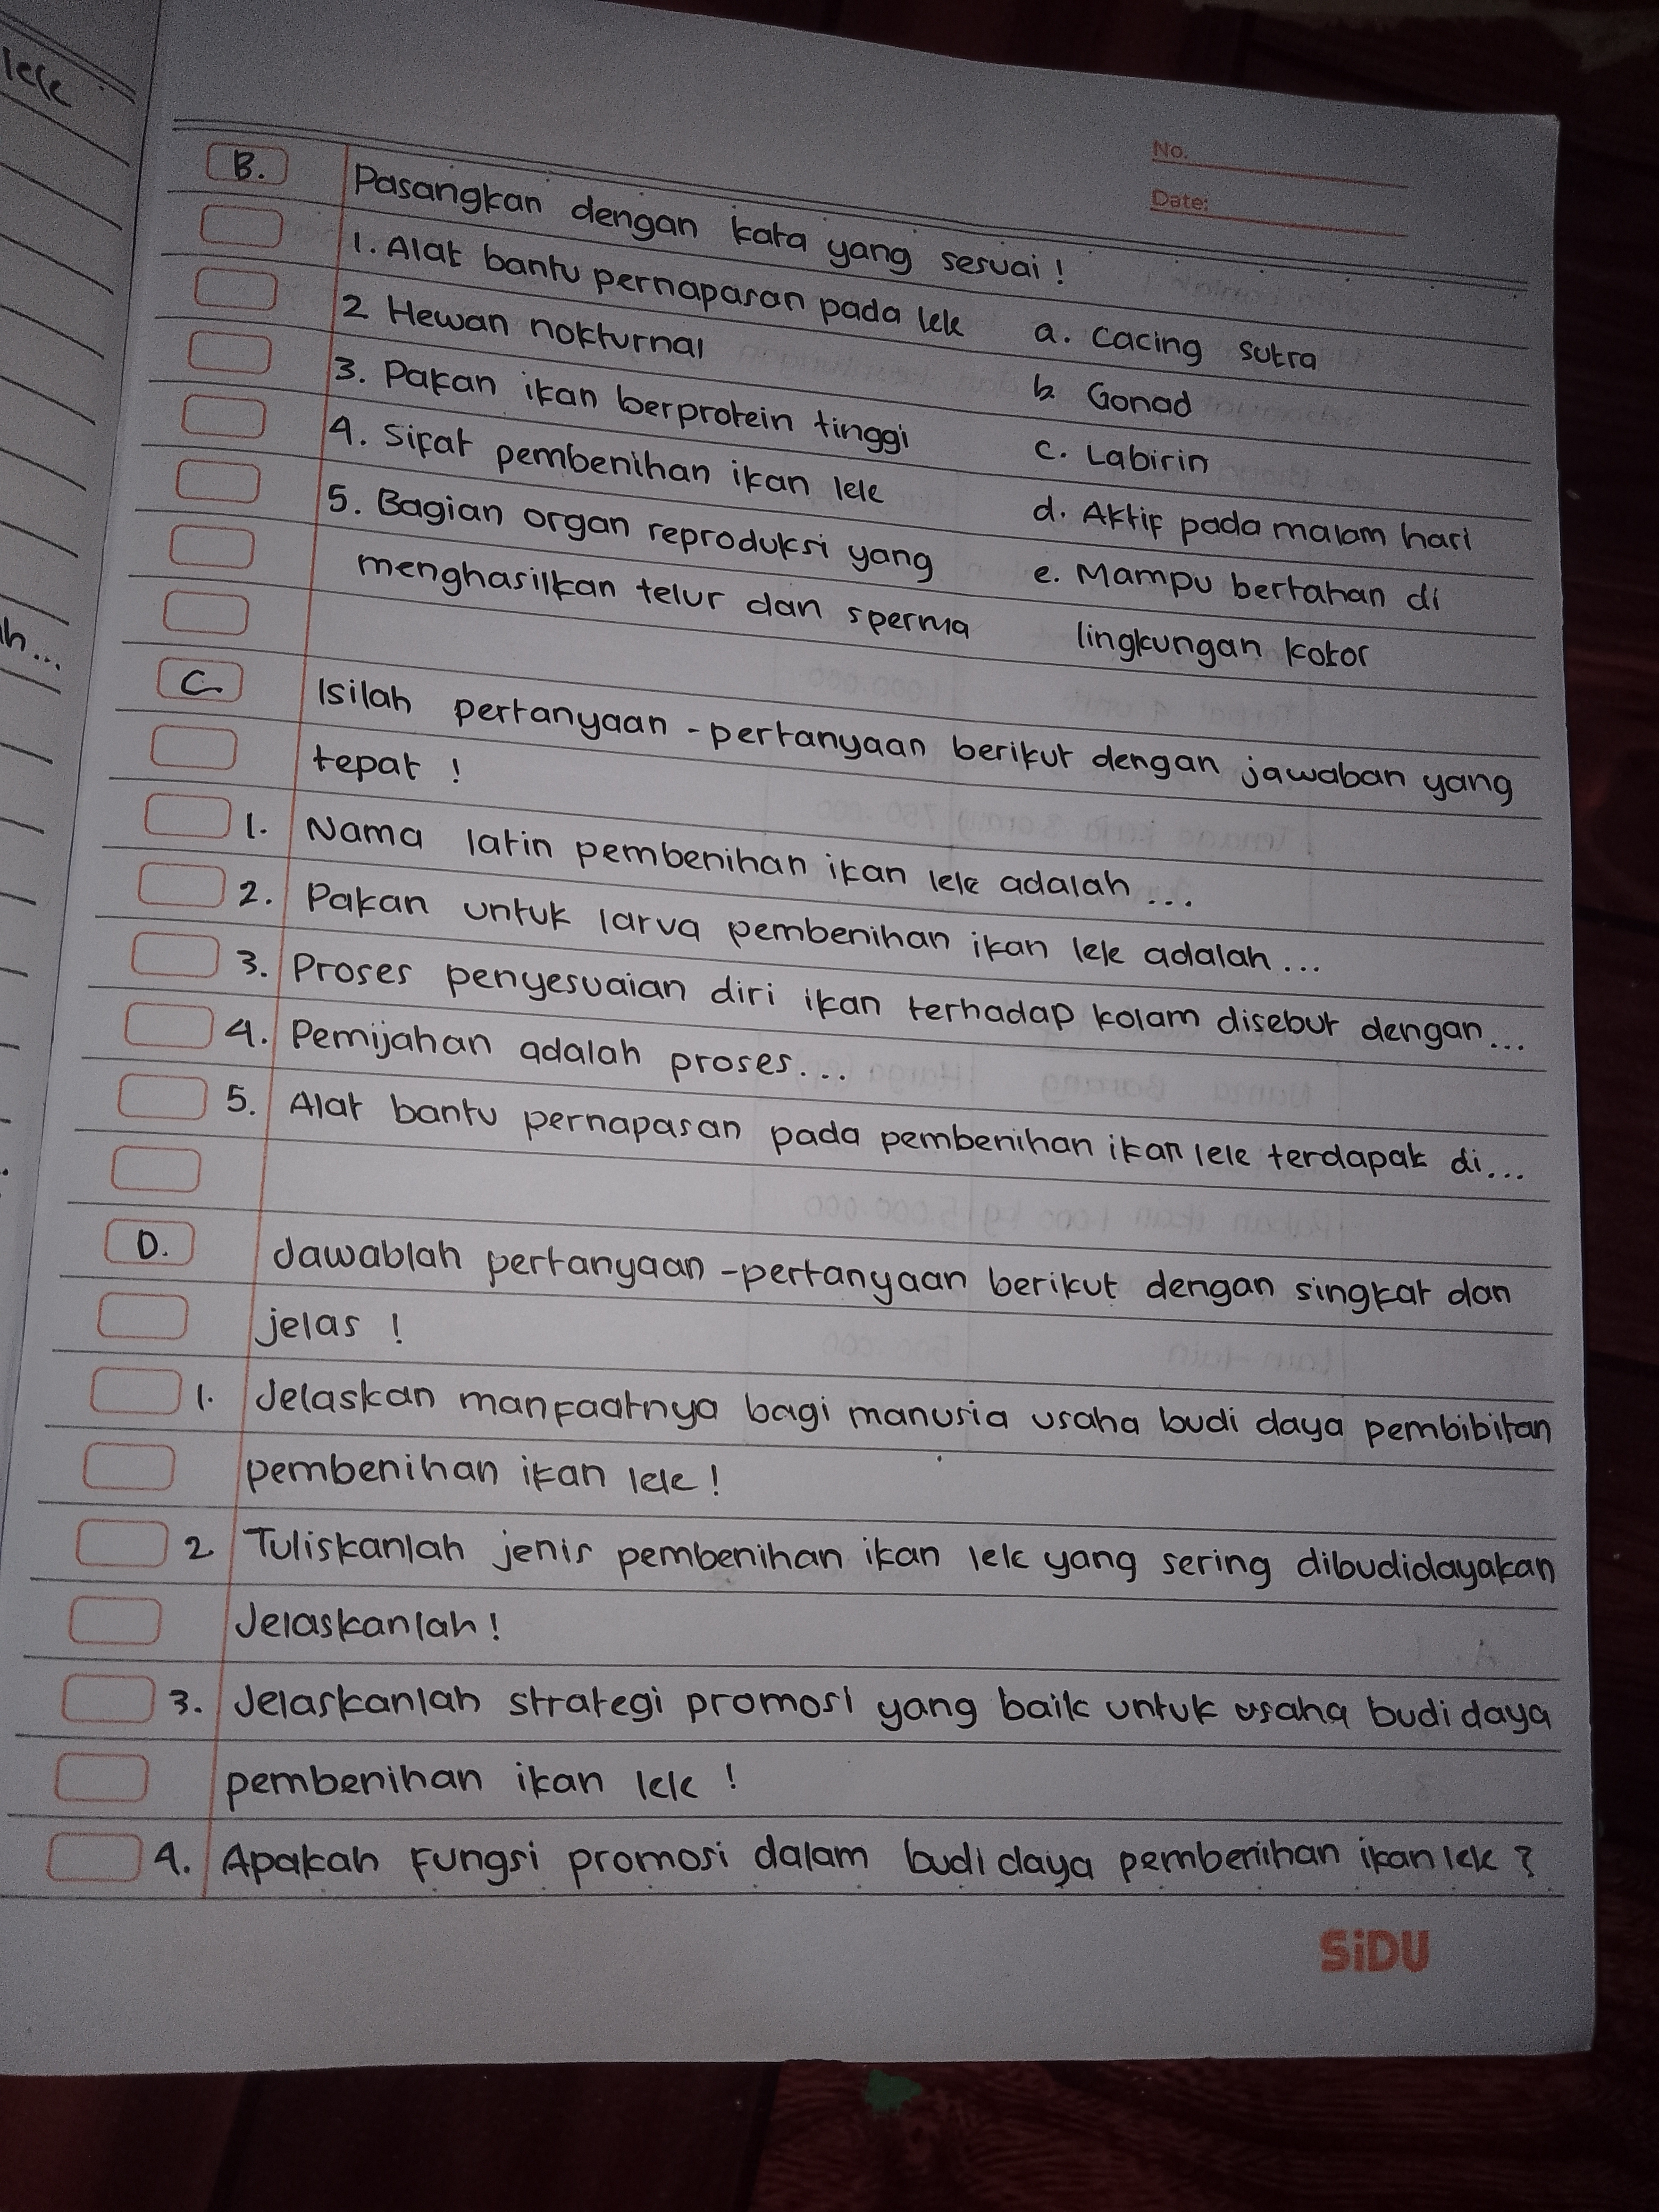 lele
h...
No.
Date:
B. Pasangkan dengan kata yang sesuai !
1. Alat bantu pernapasan pada lele a. Cacing sutra
2 Hewan nokturnal b. Gonad
3. Pakan ikan berprotein tinggi c. Labirin
4. Sifat pembenihan ikan lele d. Aktif pada malam hari
5. Bagian organ reproduksi yang e. Mampu bertahan di
menghasilkan telur dan sperma lingkungan kotor
C. Isilah pertanyaan - pertanyaan berikut dengan jawaban yang
tepat !
1. Nama latin pembenihan ikan lele adalah ...
2. Pakan untuk larva pembenihan ikan lele adalah ...
3. Proses penyesuaian diri ikan terhadap kolam disebut dengan ...
4. Pemijahan adalah proses ...
5. Alat bantu pernapasan pada pembenihan ikan lele terdapat di ...
D. Jawablah pertanyaan - pertanyaan berikut dengan singkat dan
jelas !
1. Jelaskan manfaatnya bagi manusia usaha budi daya pembibitan
pembenihan ikan lele !
2 Tuliskanlah jenis pembenihan ikan lele yang sering dibudidayakan
Jelaskanlah !
3. Jelaskanlah strategi promosi yang baik untuk usaha budi daya
pembenihan ikan lele !
4. Apakah fungsi promosi dalam budi daya pembenihan ikan lele ?
SiDU